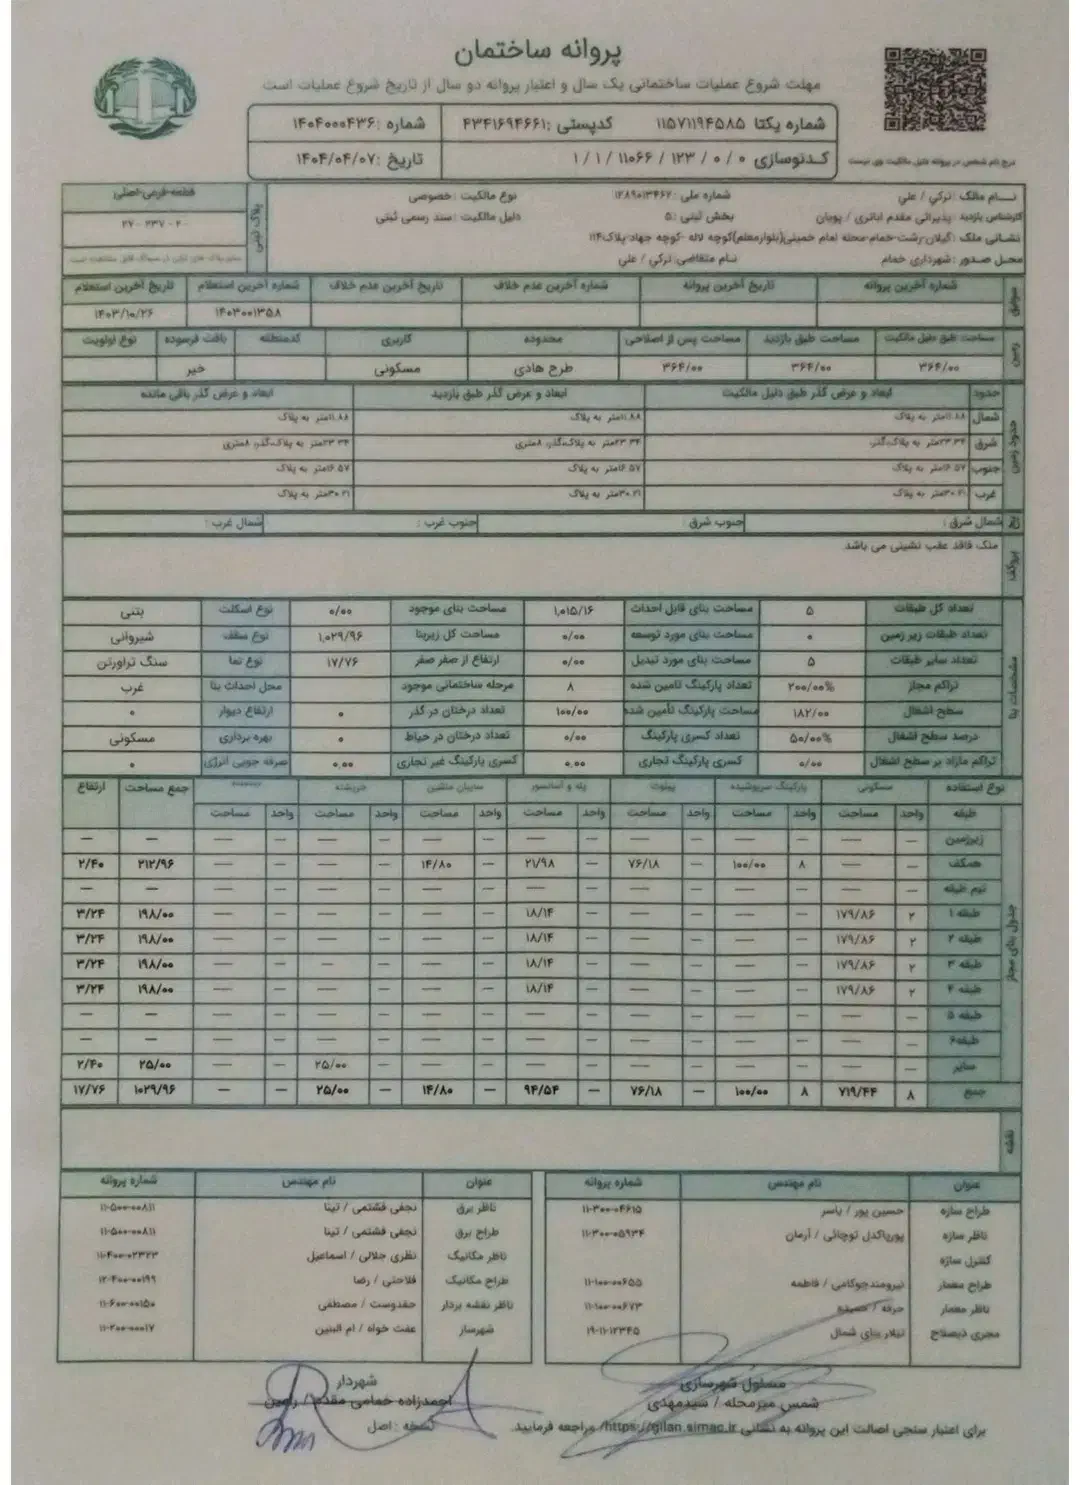 پروانه ساختمان
مهلت شروع عملیات ساختمانی یک سال و اعتبار پروانه دو سال از تاریخ شروع عملیات است
شماره یکتا ۱۱۵۷۱۱۹۴۵۸۵ کدپستی: ۴۳۴۱۶۹۴۶۶۱ شماره: ۱۴۰۴۰۰۰۴۳۶
کدنوسازی ۰ / ۰ / ۱۲۳ / ۱۱۰۶۶ / ۱ / ۱ تاریخ: ۱۴۰۴/۰۴/۰۷
نام مالک: ترکی / علی شماره ملی: ۱۲۸۹۰۱۳۴۶۲ نوع مالکیت: خصوصی
کارشناس بازدید: پذیرائی مقدم اباتری / پویان بخش ثبتی: ۵ دلیل مالکیت: سند رسمی ثبتی
نشانی ملک: گیلان-رشت-خمام-محله امام خمینی(بلوارمعلم)کوچه لاله -کوچه جهاد-پلاک۱۱۴
محل صدور: شهرداری خمام نام متقاضی: ترکی / علی
پلاک ثبتی
قطعه-فرعی-اصلی
شماره آخرین پروانه تاریخ آخرین پروانه شماره آخرین عدم خلاف تاریخ آخرین عدم خلاف شماره آخرین استعلام تاریخ آخرین استعلام
۱۴۰۳۰۰۱۳۵۸ ۱۴۰۳/۱۰/۲۶
زمین
مساحت طبق دلیل مالکیت مساحت طبق بازدید مساحت پس از اصلاحی محدوده کاربری کدمنطقه بافت فرسوده نوع اولویت
۳۶۴/۰۰ ۳۶۴/۰۰ ۳۶۴/۰۰ طرح هادی مسکونی خیر
حدود زمین
حدود ابعاد و عرض گذر طبق دلیل مالکیت ابعاد و عرض گذر طبق بازدید ابعاد و عرض گذر باقی مانده
شمال ۱۱.۸۸متر به پلاک ۱۱.۸۸متر به پلاک ۱۱.۸۸متر به پلاک
شرق ۲۳.۳۴متر به پلاک،گذر، ۲۳.۳۴متر به پلاک،گذر، ۸متری ۲۳.۳۴متر به پلاک،گذر، ۸متری
جنوب ۱۶.۵۷متر به پلاک ۱۶.۵۷متر به پلاک ۱۶.۵۷متر به پلاک
غرب ۳۰.۲۱متر به پلاک ۳۰.۲۱متر به پلاک ۳۰.۲۱متر به پلاک
پخ شمال شرق: جنوب شرق جنوب غرب: شمال غرب:
ملک فاقد عقب نشینی می باشد
مشخصات بنا
تعداد کل طبقات ۵ مساحت بنای قابل احداث ۱,۰۱۵/۱۶ مساحت بنای موجود ۰/۰۰ نوع اسکلت بتنی
تعداد طبقات زیر زمین ۰ مساحت بنای مورد توسعه ۰/۰۰ مساحت کل زیربنا ۱,۰۲۹/۹۶ نوع سقف شیروانی
تعداد سایر طبقات ۵ مساحت بنای مورد تبدیل ۰/۰۰ ارتفاع از صفر صفر ۱۷/۷۶ نوع نما سنگ تراورتن
تراکم مجاز ۲۰۰/۰۰% تعداد پارکینگ تامین شده ۸ مرحله ساختمانی موجود محل احداث بنا غرب
سطح اشغال ۱۸۲/۰۰ مساحت پارکینگ تأمین شده ۱۰۰/۰۰ تعداد درختان در گذر ۰ ارتفاع دیوار ۰
درصد سطح اشغال ۵۰/۰۰% تعداد کسری پارکینگ ۰/۰۰ تعداد درختان در حیاط ۰ بهره برداری مسکونی
تراکم مازاد بر سطح اشغال ۰/۰۰ کسری پارکینگ تجاری ۰.۰۰ کسری پارکینگ غیر تجاری ۰.۰۰ صرفه جویی انرژی ۰
جدول بنای مجاز
نوع استفاده مسکونی پارکینگ سرپوشیده پیلوت پله و آسانسور سایبان ماشین خرپشته جمع مساحت ارتفاع
طبقه واحد مساحت واحد مساحت واحد مساحت واحد مساحت واحد مساحت واحد مساحت واحد مساحت
زیرزمین — — — — — — — — — — — — — — — —
همکف — — ۸ ۱۰۰/۰۰ — ۷۶/۱۸ — ۲۱/۹۸ — ۱۴/۸۰ — — — — ۲۱۲/۹۶ ۲/۴۰
نیم طبقه — — — — — — — — — — — — — — — —
طبقه ۱ ۲ ۱۷۹/۸۶ — — — — — ۱۸/۱۴ — — — — — — ۱۹۸/۰۰ ۳/۲۴
طبقه ۲ ۲ ۱۷۹/۸۶ — — — — — ۱۸/۱۴ — — — — — — ۱۹۸/۰۰ ۳/۲۴
طبقه ۳ ۲ ۱۷۹/۸۶ — — — — — ۱۸/۱۴ — — — — — — ۱۹۸/۰۰ ۳/۲۴
طبقه ۴ ۲ ۱۷۹/۸۶ — — — — — ۱۸/۱۴ — — — — — — ۱۹۸/۰۰ ۳/۲۴
طبقه ۵ — — — — — — — — — — — — — — — —
طبقه۶ — — — — — — — — — — — — — — — —
سایر — — — — — — — — — — — ۲۵/۰۰ — — ۲۵/۰۰ ۲/۴۰
جمع ۸ ۷۱۹/۴۴ ۸ ۱۰۰/۰۰ — ۷۶/۱۸ — ۹۴/۵۴ — ۱۴/۸۰ — ۲۵/۰۰ — — ۱۰۲۹/۹۶ ۱۷/۷۶
نقشه
عنوان نام مهندس شماره پروانه عنوان نام مهندس شماره پروانه
طراح سازه حسین پور / یاسر ۱۱-۳۰۰-۰۴۶۱۵ ناظر برق نجفی فشتمی / تینا ۱۱-۵۰۰-۰۰۸۱۱
ناظر سازه پورپاکدل توچائی / آرمان ۱۱-۳۰۰-۰۵۹۳۴ طراح برق نجفی فشتمی / تینا ۱۱-۵۰۰-۰۰۸۱۱
کنترل سازه ناظر مکانیک نظری جلالی / اسماعیل ۱۱-۴۰۰-۰۲۳۲۳
طراح معمار نیرومندجوکامی / فاطمه ۱۱-۱۰۰-۰۰۶۵۵ طراح مکانیک فلاحتی / رضا ۱۲-۴۰۰-۰۰۱۹۹
ناظر معمار حرفه / ۱۱-۱۰۰-۰۰۶۷۳ ناظر نقشه بردار حقدوست / مصطفی ۱۱-۶۰۰-۰۰۱۵۰
مجری ذیصلاح تیلار بنای شمال ۱۹-۱۱-۱۲۳۴۵ شهرساز عفت خواه / ام البنین ۱۱-۲۰۰-۰۰۰۱۷
مسئول شهرسازی شهردار
شمس میرمحله / سیدمهدی احمدزاده خمامی مقدم / رامین
برای اعتبار سنجی اصالت این پروانه به نشانی https://gilan.simac.ir/ مراجعه فرمایید نسخه: اصل